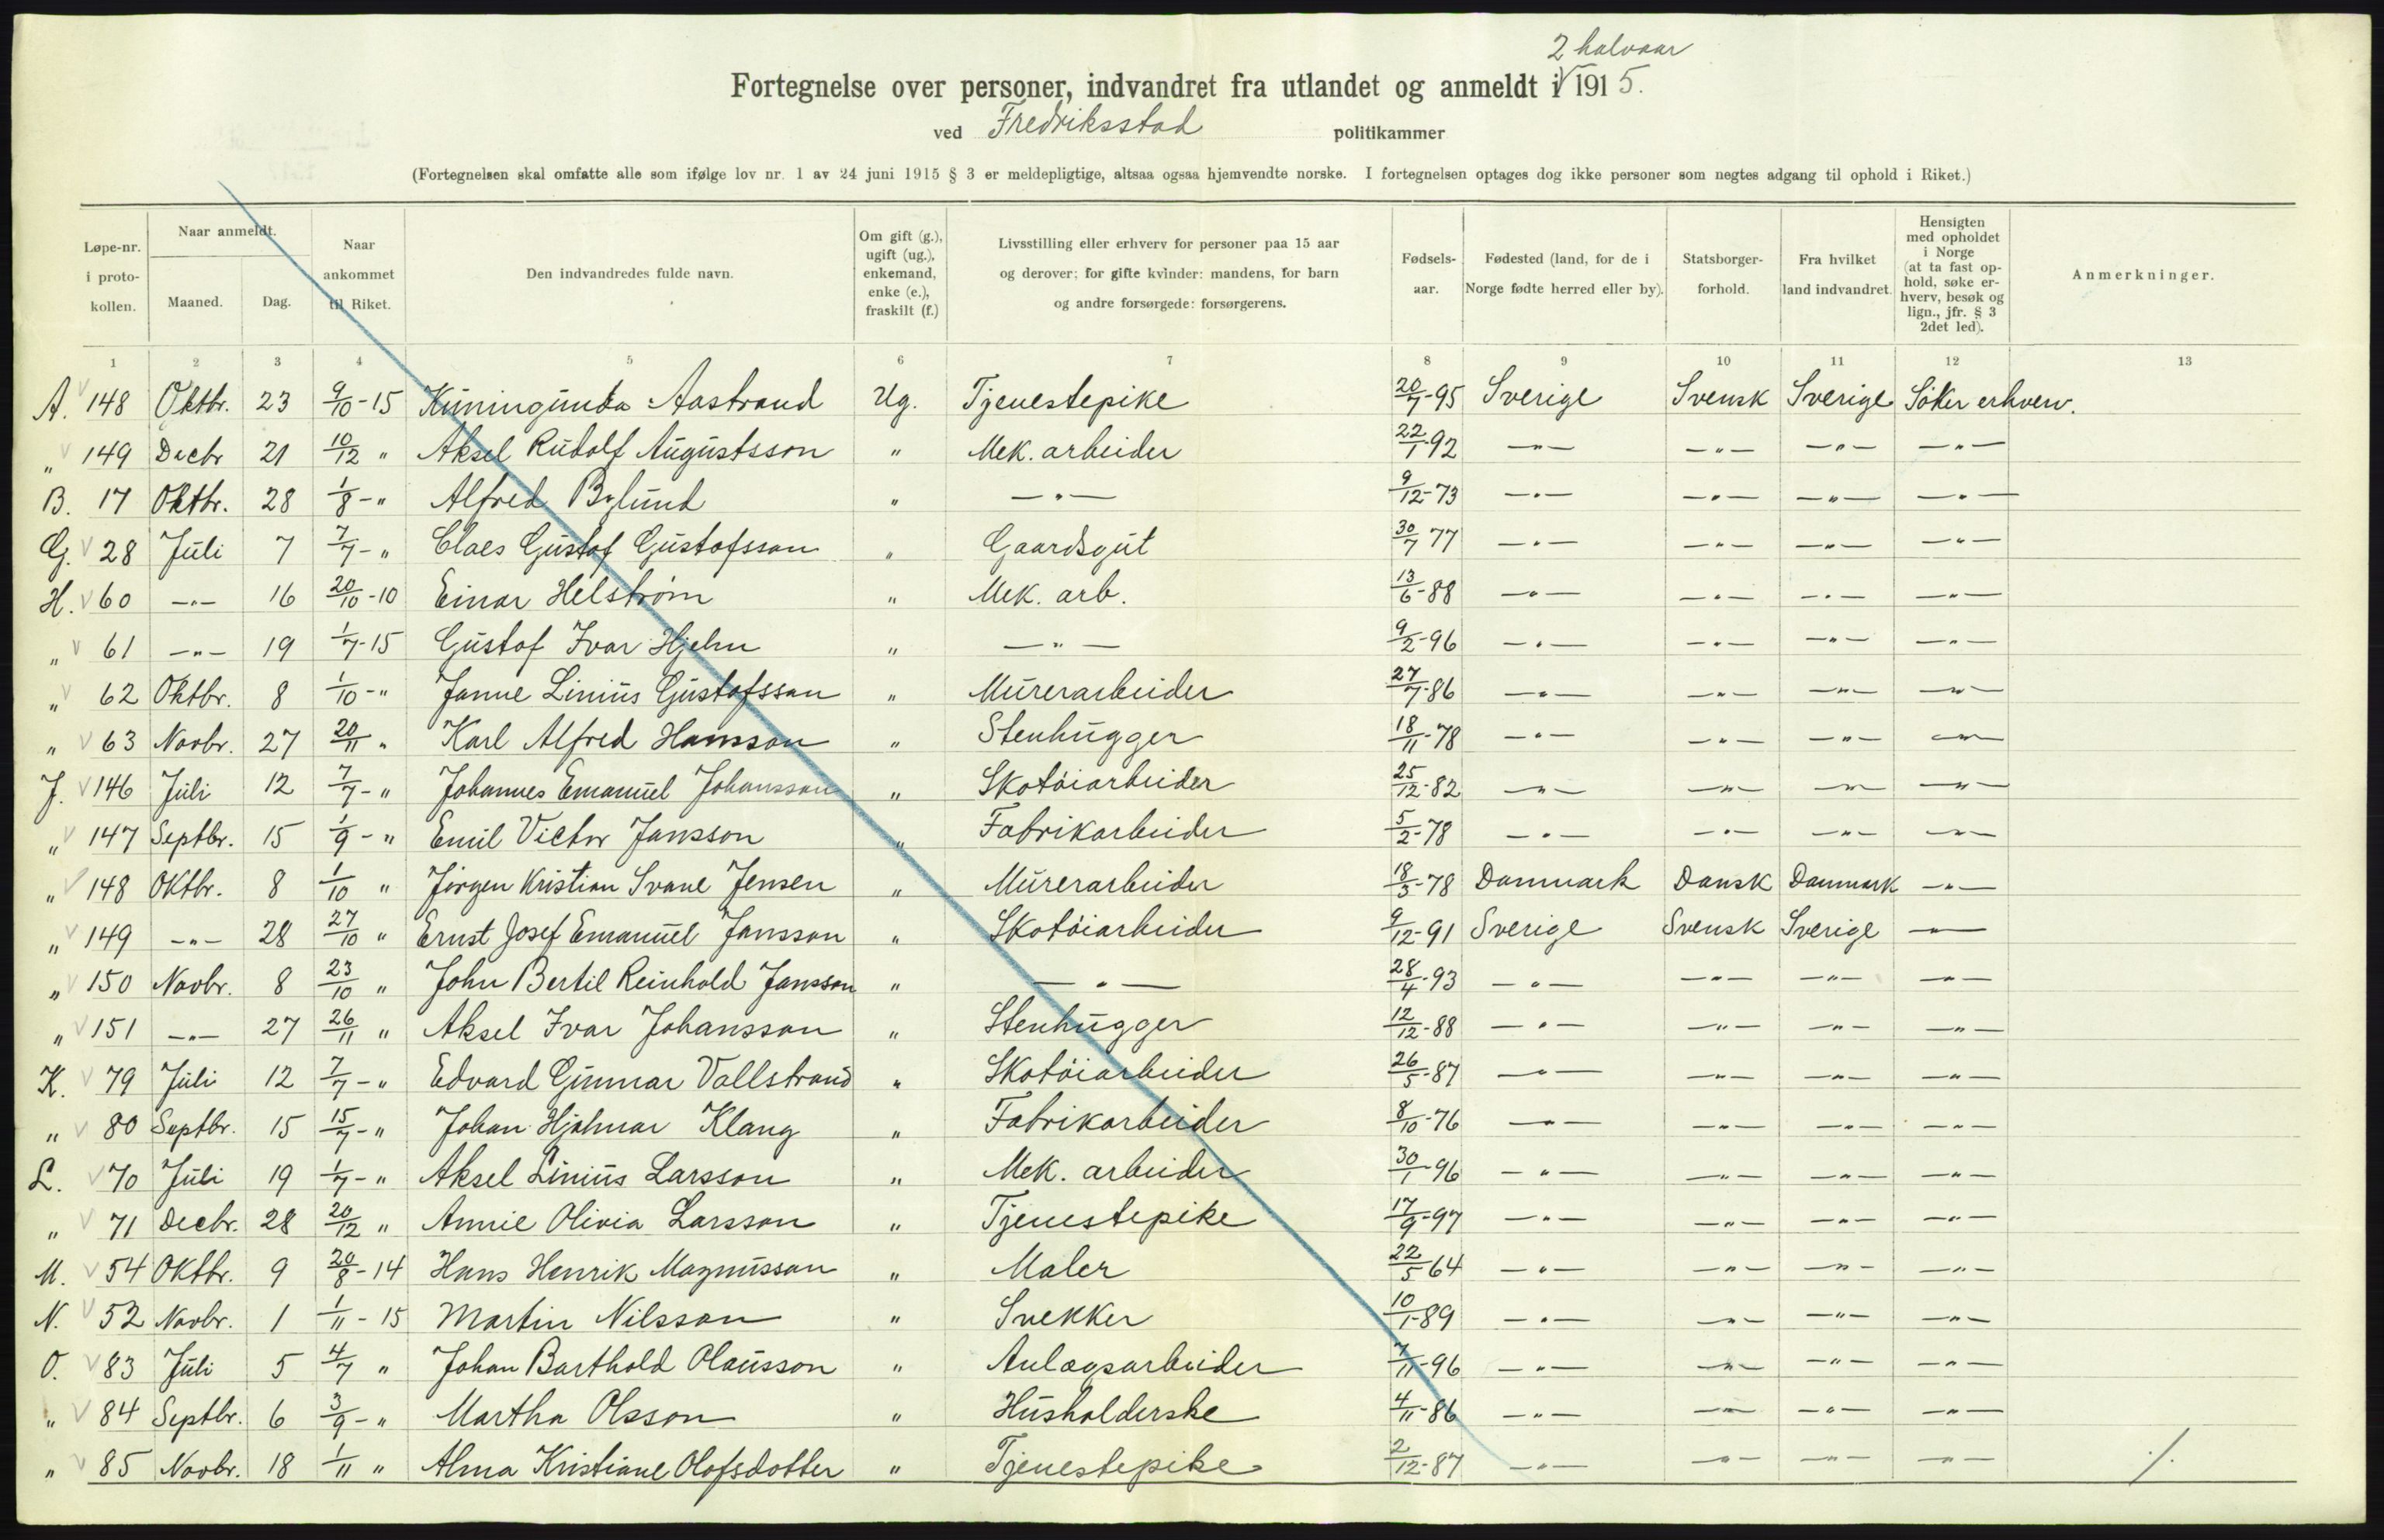 2 halvaar
Fortegnelse over personer, indvandret fra utlandet og anmeldt i 1915.
ved Fredriksstad politikammer
(Fortegnelsen skal omfatte alle som ifølge lov nr. 1 av 24 juni 1915 § 3 er meldepligtige, altsaa ogsaa hjemvendte norske. I fortegnelsen optages dog ikke personer som negtes adgang til ophold i Riket.)
Løpe-nr. i proto- kollen.
Naar anmeldt.
Maaned.
Dag.
Naar ankommet til Riket.
Den indvandredes fulde navn.
Om gift (g.), ugift (ug.), enkemand, enke (e.), fraskilt (f.)
Livsstilling eller erhverv for personer paa 15 aar og derover; for gifte kvinder: mandens, for barn og andre forsørgede: forsørgerens.
Fødsels- aar.
Fødested (land, for de i Norge fødte herred eller by).
Statsborger- forhold.
Fra hvilket land indvandret.
Hensigten med opholdet i Norge (at ta fast op- hold, søke er- hverv, besøk og lign., jfr. § 3 2det led).
Anmerkninger.
1 2 3 4 5 6 7 8 9 10 11 12 13
A. 148 Oktbr. 23 9/10-15 Kuningunda Aastrand Ug. Tjenestepike 20/7-95 Sverige Svensk Sverige Söker erhverv.
„ 149 Decbr 21 10/12 „ Aksel Rudolf Augustsson „ Mek. arbeider 22/1-92 —„— —„— —„— —„—
B. 17 Oktbr. 28 1/8-„ Alfred Bylund „ —„— 9/12-73 —„— —„— —„— —„—
G. 28 Juli 7 7/7-„ Claes Gustof Gustofsson „ Gaardsgut 30/7 77 —„— —„— —„— —„—
H. 60 —„— 16 20/10-10 Einar Helstrøm „ Mek. arb. 13/6-88 —„— —„— —„— —„—
„ 61 —„— 19 1/7-15 Gustof Ivar Hjelm „ —„— 9/2-96 —„— —„— —„— —„—
„ 62 Oktbr. 8 1/10-„ Janne Linius Gustofsson „ Murerarbeider 27/7-86 —„— —„— —„— —„—
„ 63 Novbr. 27 20/11 „ Karl Alfred Hansson „ Stenhugger 18/11-78 —„— —„— —„— —„—
J. 146 Juli 12 7/7-„ Johannes Emanuel Johansson „ Skotöiarbeider 25/12-82 —„— —„— —„— —„—
„ 147 Septbr. 15 1/9-„ Emil Victor Jansson „ Fabrikarbeider 5/2-78 —„— —„— —„— —„—
„ 148 Oktbr. 8 1/10 „ Jörgen Kristian Svane Jensen „ Murerarbeider 18/3-78 Danmark Dansk Danmark —„—
„ 149 —„— 28 27/10 „ Ernst Josef Emanuel Jansson „ Skotöiarbeider 9/12-91 Sverige Svensk Sverige —„—
„ 150 Novbr. 8 23/10 „ John Bertil Reinhold Jansson „ —„— 28/4-93 —„— —„— —„— —„—
„ 151 —„— 27 26/11 „ Aksel Ivar Johansson „ Stenhugger 12/12-88 —„— —„— —„— —„—
K. 79 Juli 12 7/7-„ Edvard Gunnar Vallstrand „ Skotöiarbeider 26/5-87 —„— —„— —„— —„—
„ 80 Septbr. 15 15/7-„ Johan Hjalmar Klang „ Fabrikarbeider 8/10-76 —„— —„— —„— —„—
L. 70 Juli 19 1/7-„ Aksel Linius Larsson „ Mek. arbeider 30/1-96 —„— —„— —„— —„—
„ 71 Decbr. 28 20/12 „ Annie Olivia Larsson „ Tjenestepike 17/9-97 —„— —„— —„— —„—
M. 54 Oktbr. 9 20/8-14 Hans Henrik Magnusson „ Maler 22/5 64 —„— —„— —„— —„—
N. 52 Novbr. 1 1/11-15 Martin Nilsson „ Snekker 10/1-89 —„— —„— —„— —„—
O. 83 Juli 5 4/7 „ Johan Barthold Olausson „ Anlægsarbeider 7/11-96 —„— —„— —„— —„—
„ 84 Septbr. 6 3/9-„ Martha Olsson „ Husholderske 4/11-86 —„— —„— —„— —„—
„ 85 Novbr. 18 1/11 „ Alma Kristiane Olofsdotter „ Tjenestepike 2/12-87 —„— —„— —„— —„— ./.